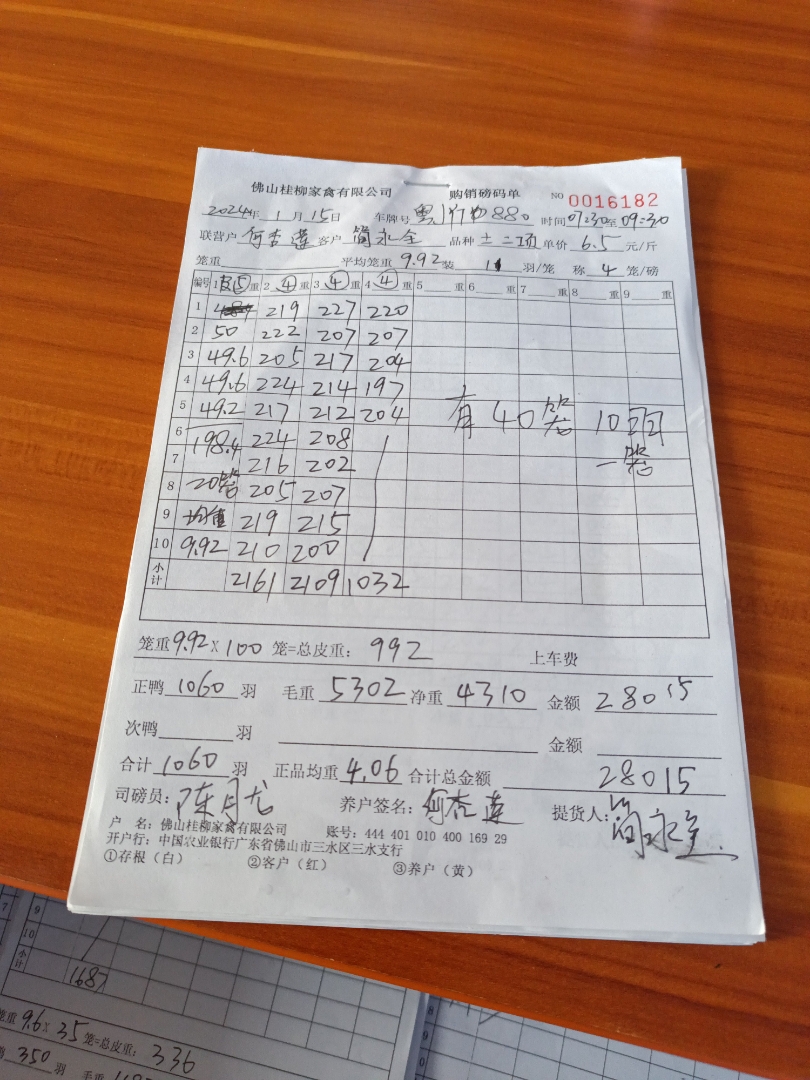 佛山桂柳家禽有限公司 购销磅码单 NO 0016182
2024年 1 月 15 日 车牌号 880 时间 07:30 至 09:30
联营户 何杏莲 客户 简永全 品种 土二项 单价 6.5 元/斤
笼重 平均笼重 9.92 装 11 羽/笼 称 4 笼/磅
编号 1 皮⑤ 重 2 ④ 重 3 ④ 重 4 ④ 重 5 重 6 重 7 重 8 重 9 重
1 219 227 220
2 50 222 207 207
3 49.6 205 217 204
4 49.6 224 214 197
5 49.2 217 212 204 有40笼 10羽
6 198.4 224 208 一笼
7 216 202
8 20笼 205 207
9 均重 219 215
10 9.92 210 200
小计 2161 2109 1032
笼重 9.92 X 100 笼=总皮重: 992 上车费
正鸭 1060 羽 毛重 5302 净重 4310 金额 28015
次鸭 羽 金额
合计 1060 羽 正品均重 4.06 合计总金额 28015
司磅员: 陈月尤 养户签名: 何杏莲 提货人: 简永全
户 名: 佛山桂柳家禽有限公司 账号: 444 401 010 400 169 29
开户行: 中国农业银行广东省佛山市三水区三水支行
①存根（白） ②客户（红） ③养户（黄）
7 9
10
小计 1687
笼重 9.6 X 35 笼=总皮重: 336
350 羽 毛重
8
9
10